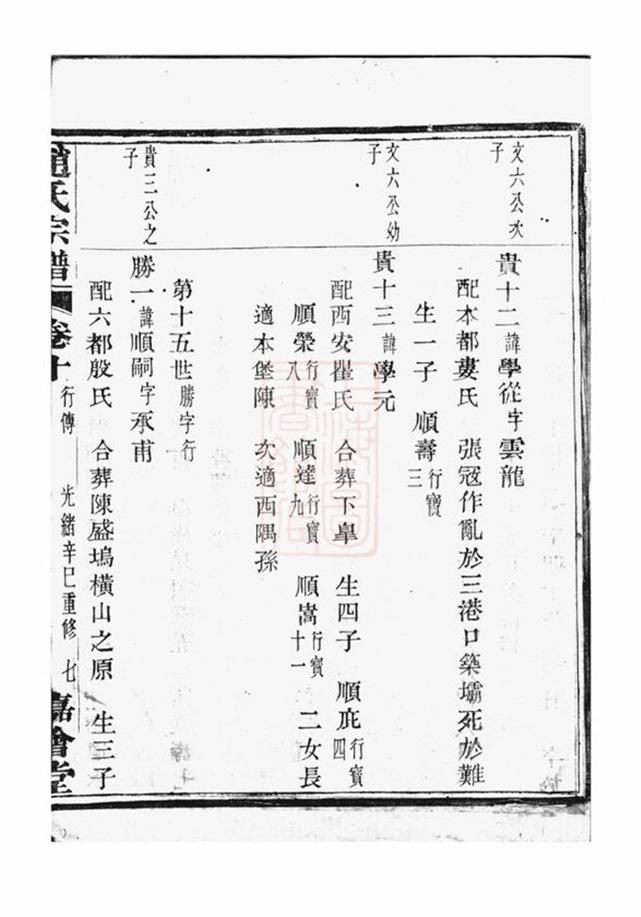 文六公次子
貴十二諱學從字雲龍
配本都婁氏 張冦作亂於三港口築壩死於難
生一子 順壽行寶三
文六公幼子
貴十三諱學元
配西安翟氏 合葬下皐 生四子 順庇行寶四
順榮行寶八 順達行寶九 順嵩行寶十一 二女長
適本堡陳 次適西隅孫
第十五世勝字行
貴三公之子
勝一諱順嗣字承甫
配六都殷氏 合葬陳盛塢橫山之原 生三子
趙氏宗譜 卷十 行傳 光緒辛巳重修 七 嘉會堂